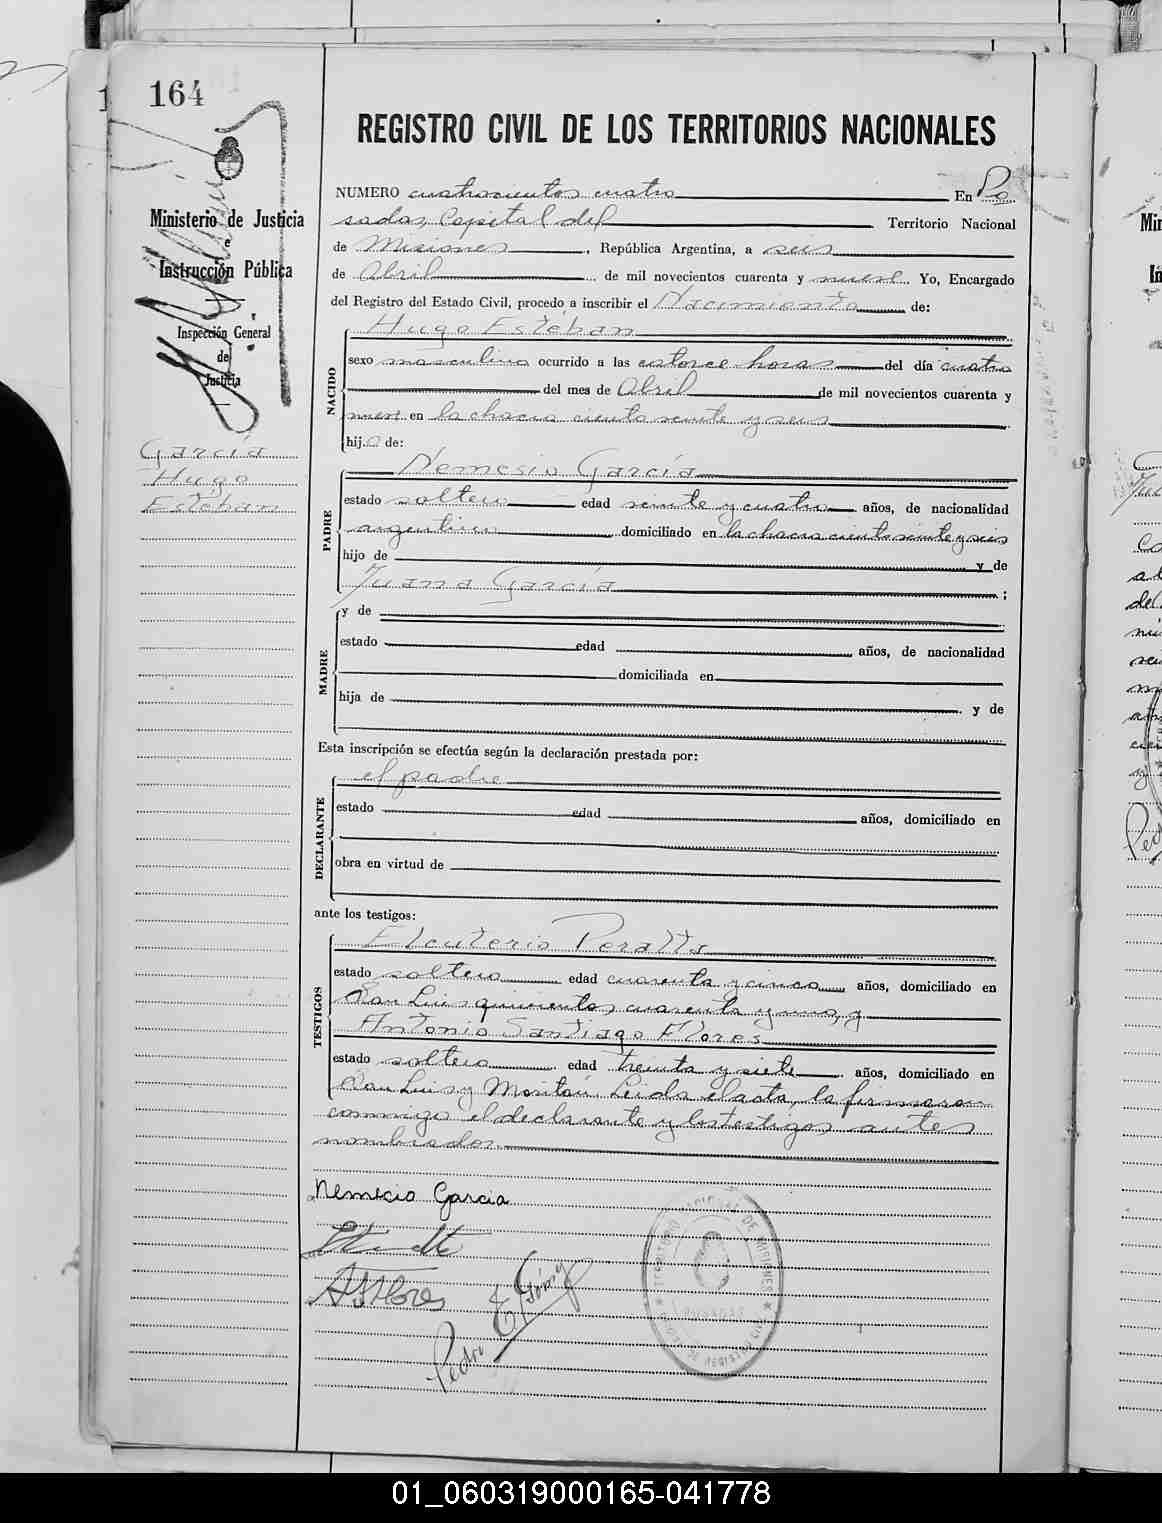 164
REGISTRO CIVIL DE LOS TERRITORIOS NACIONALES
Ministerio de Justicia
e
Instrucción Pública
Inspección General
de
Justicia
García
Hugo
Estéban
NUMERO cuatrocientos cuatro En Po
sadas, Capital del Territorio Nacional
de Misiones, República Argentina, a seis
de Abril de mil novecientos cuarenta y nueve Yo, Encargado
del Registro del Estado Civil, procedo a inscribir el Nacimiento de:
NACIDO
Hugo Estéban
sexo masculino ocurrido a las catorce horas del día cuatro
del mes de Abril de mil novecientos cuarenta y
nueve en la chacra ciento veinte y seis
hijo de:
PADRE
Nemesio García
estado soltero edad veinte y cuatro años, de nacionalidad
argentino domiciliado en la chacra ciento veinte y seis
hijo de y de
Juana García ;
MADRE
y de
estado edad años, de nacionalidad
domiciliada en
hija de y de
Esta inscripción se efectúa según la declaración prestada por:
DECLARANTE
el padre
estado edad años, domiciliado en
obra en virtud de
ante los testigos:
TESTIGOS
Eleuterio Peralta
estado soltero edad cuarenta y cinco años, domiciliado en
San Luis quinientos cuarenta y uno, y
Antonio Santiago Flores
estado soltero edad treinta y siete años, domiciliado en
San Luis y Moritán. Leida el acta, la firmaron
conmigo el declarante y los testigos antes
nombrados.
Nemecio Garcia
ASFlores
Pedro E. Gómez
TERRITORIO NACIONAL DE MISIONES
POSADAS
01_060319000165-041778